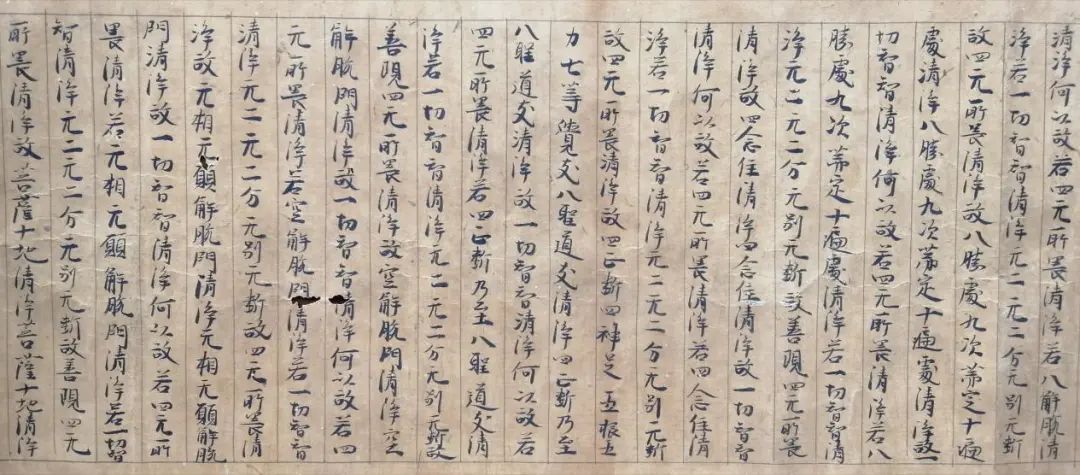 清淨何以故若四无所畏清淨若八解脫清
淨若一切智智清淨无二无二分无別无斷
故四无所畏清淨故八勝處九次第定十遍
處清淨八勝處九次第定十遍處清淨故一
切智智清淨何以故若四无所畏清淨若八
勝處九次第定十遍處清淨若一切智智清
淨无二无二分无別无斷故善現四无所畏
清淨故四念住清淨四念住清淨故一切智智
清淨何以故若四无所畏清淨若四念住清
淨若一切智智清淨无二无二分无別无斷
故四无所畏清淨故四正斷四神足五根五
力七等覺支八聖道支清淨四正斷乃至
八聖道支清淨故一切智智清淨何以故若
四无所畏清淨若四正斷乃至八聖道支清
淨若一切智智清淨无二无二分无別无斷故
善現四无所畏清淨故空解脫門清淨空
解脫門清淨故一切智智清淨何以故若四
无所畏清淨若空解脫門清淨若一切智智
清淨无二无二分无別无斷故四无所畏清
淨故无相无願解脫門清淨无相无願解脫
門清淨故一切智智清淨何以故若四无所
畏清淨若无相无願解脫門清淨若一切智
智清淨无二无二分无別无斷故善現四无
所畏清淨故菩薩十地清淨菩薩十地清淨